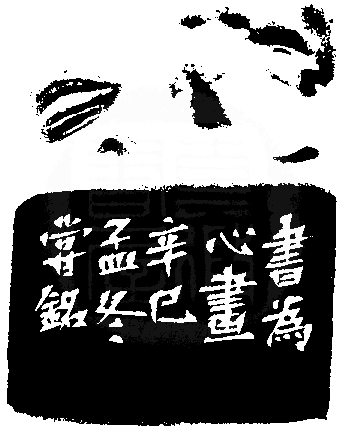 書為
心畫
辛巳
孟冬
甞銘